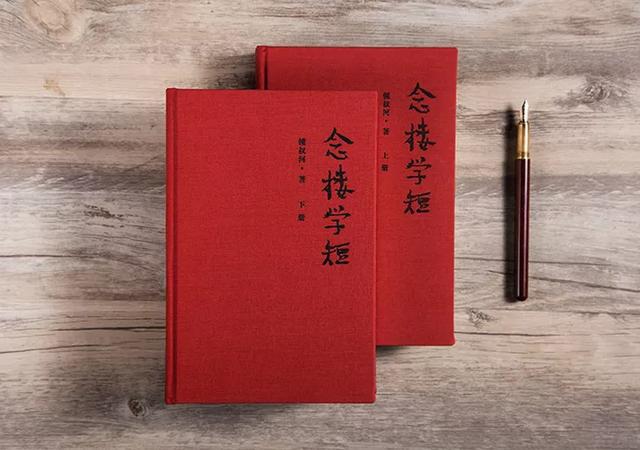 念楼学短
锺叔河·著 下册
念楼学短
锺叔河·著 上册